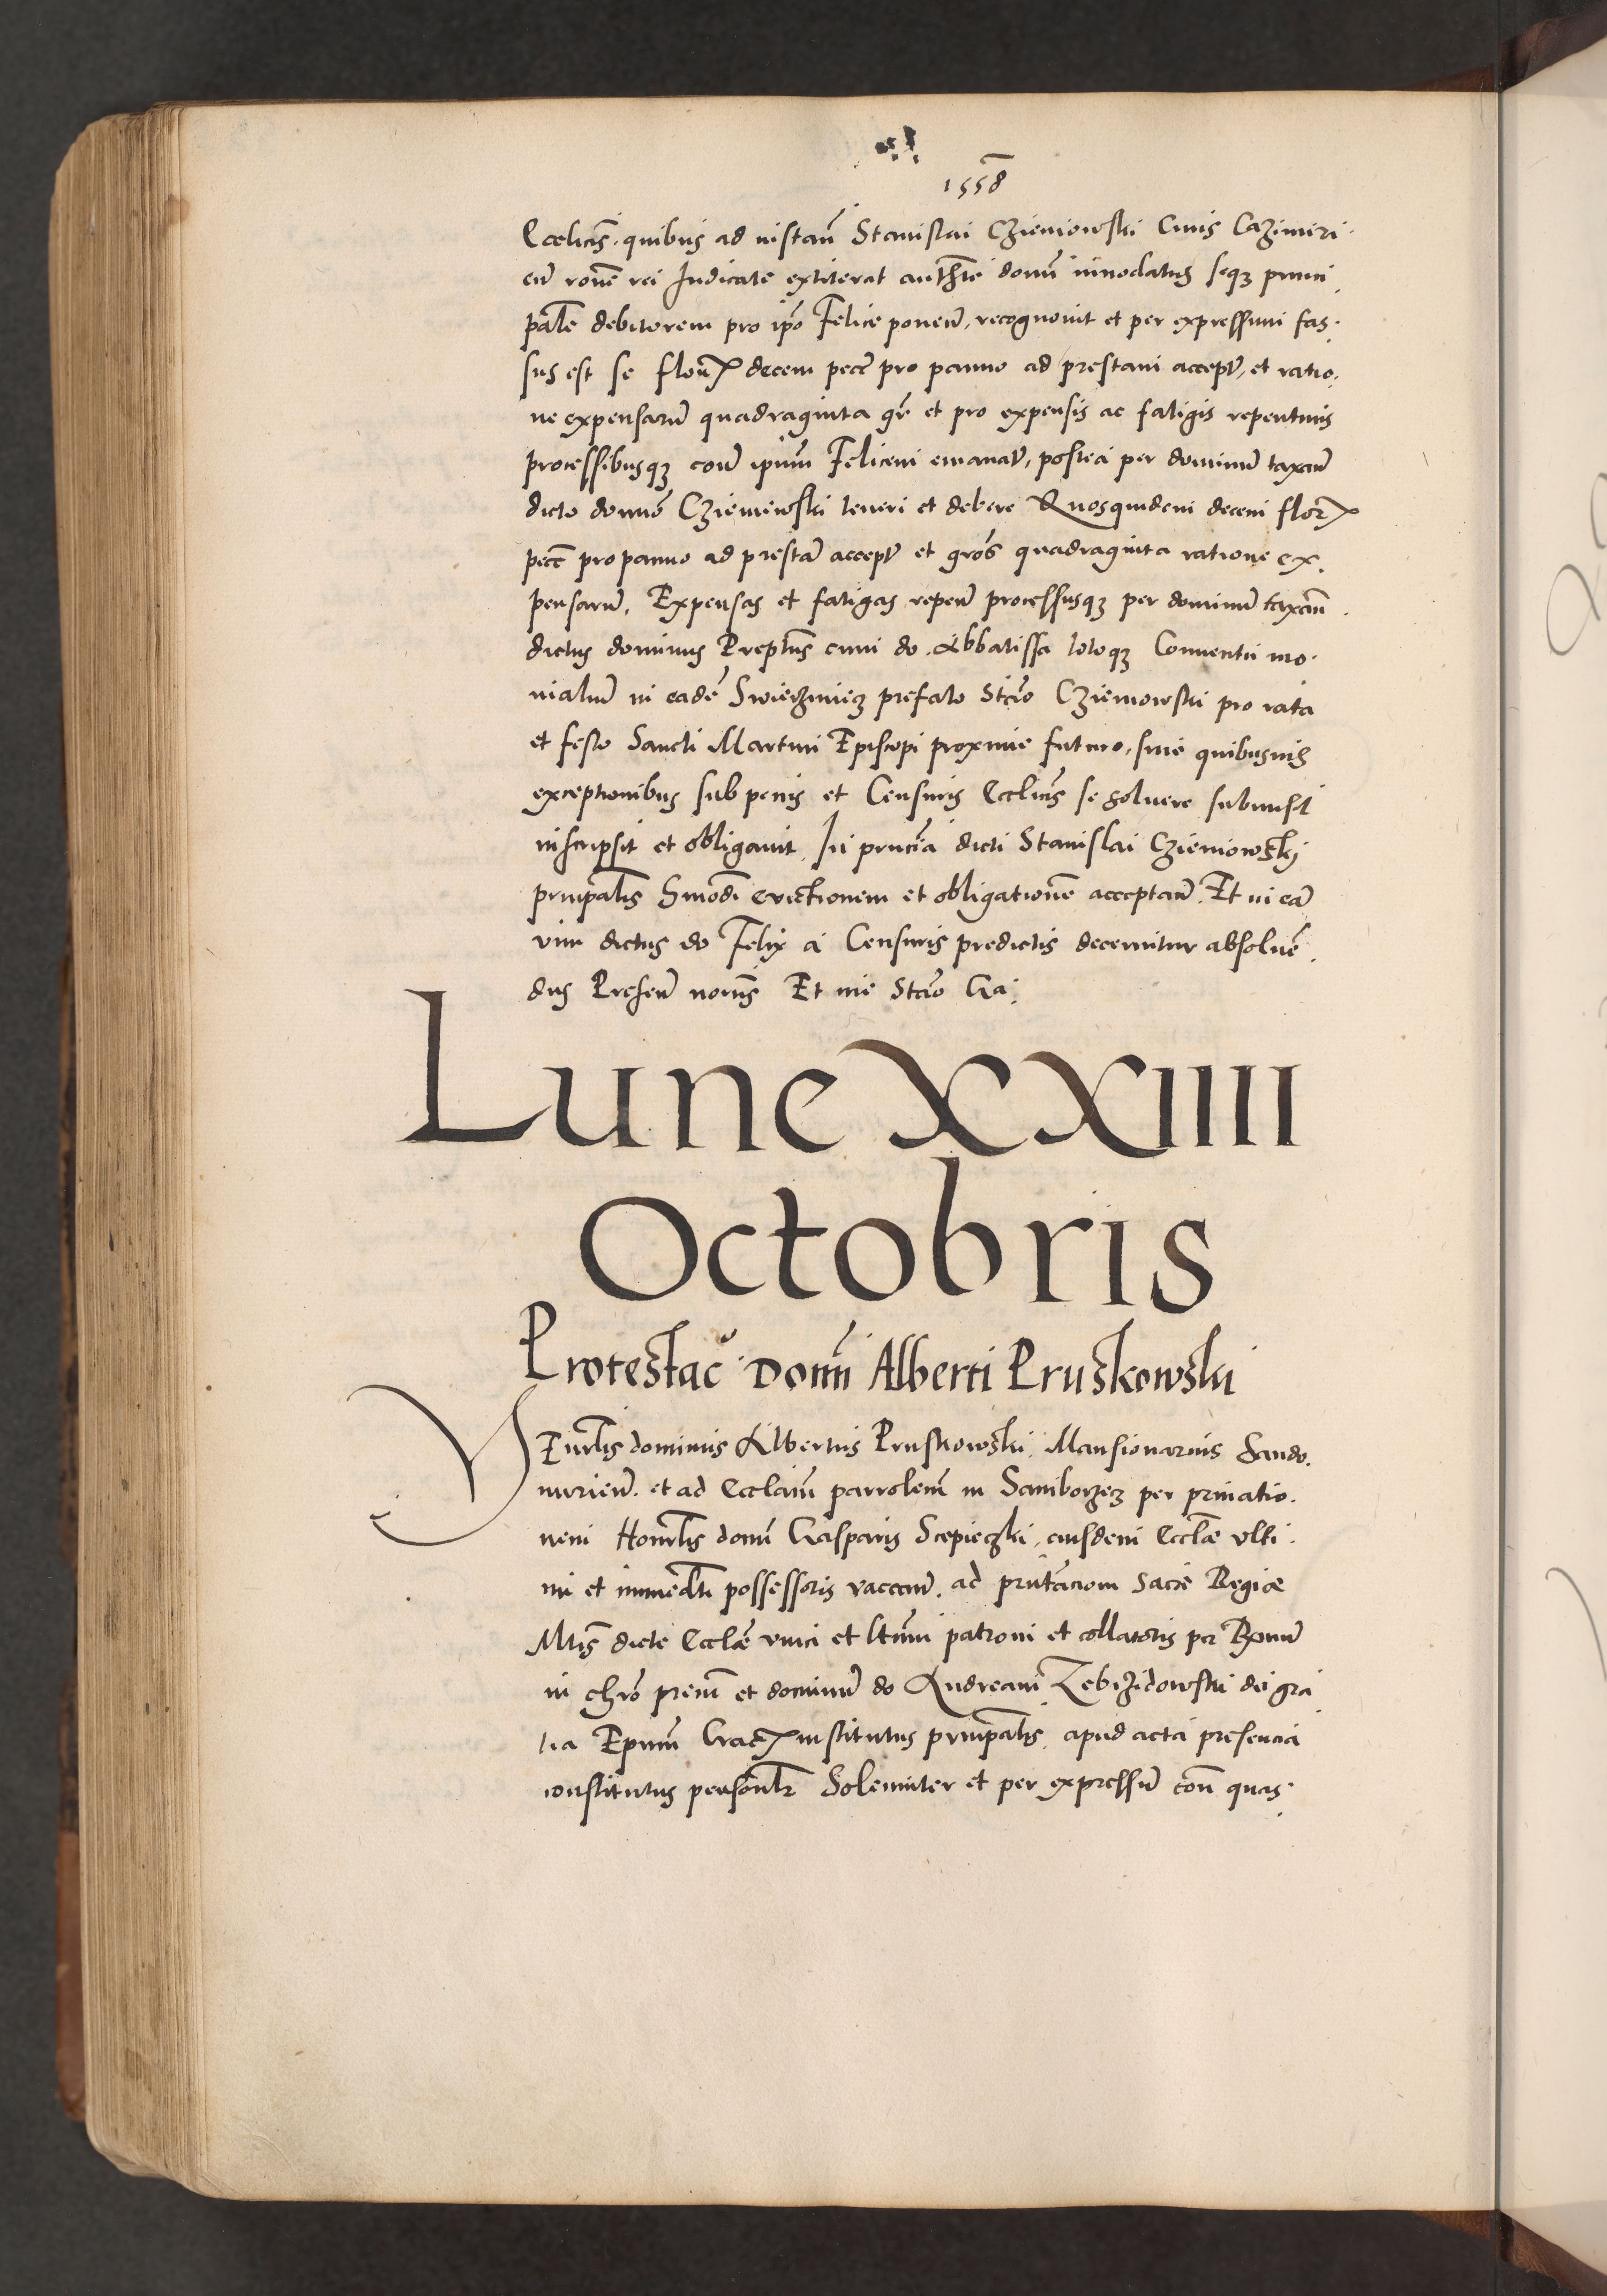 1558
Ecclicis. quibus ad instam Stanislai Cziemowski Civis Cazimiri.
en rone rei Iudicate extiterat authte domi innodatus seqз princi.
pale debitorem pro ipo Felice ponens, recognovit et per expressum fas.
sus est se floꝝ decem pecc pro panno ad prestam accept, et ratio.
ne expensaru quadraginta gr et pro expensis ac fatigis repentinis
processibusqз con ipum Felicem emanat, postea per dominu taxan
dicto domino Cziemowski teneri et debere Quosquidem decem floꝝ
pecc pro panno ad presta accept et gros quadraginta ratione ex.
pensaru, Expensas et fatigas repen processusqз per dominu taxan.
dictus dominus Preptus cum do. Abbatissa totoqз Conventu mo.
nialiu in eade Swieczniez prefato Stao Cziemowski pro rata
et festo Sancti Martini Episcopi proxime futuro, sine quibusvis
exceptionibus sub penis et Censuris Ecclicis se solvere submisit
inscripsit et obligavit. In pruncia dicti Stanislai Cziemowskij
principalis Hmodi evictionem et obligatione acceptan. Et in ea
vim dictus do Felix a Censuris predictis decernitur absolve.
dus Presen noriis Et me Stao Ga.
Lune XXIIII
Octobris
Protestac Domi Alberti Pruskowski
VEnrlis dominus Albertus Pruskowski, Mansionarius Sando.
mirien. et ad Ecclaim parrolem in Samborzecz per privatio.
nem Honrlis domi Gasparis Scepieczki, eiusdem Eccle ulti.
mi et immedti possessoris vaccan. ad pntacionem Sacre Regiæ
Mtis dicte Eccle unici et ltimi patroni et collatoris per Rxmu
in chro prem et dominu do Andream Zebrzidowski dei gra
tia Epum Cracꝝ institutus principalis, apud acta presencia
constitutus personlr Solemniter et per expressu con quas.